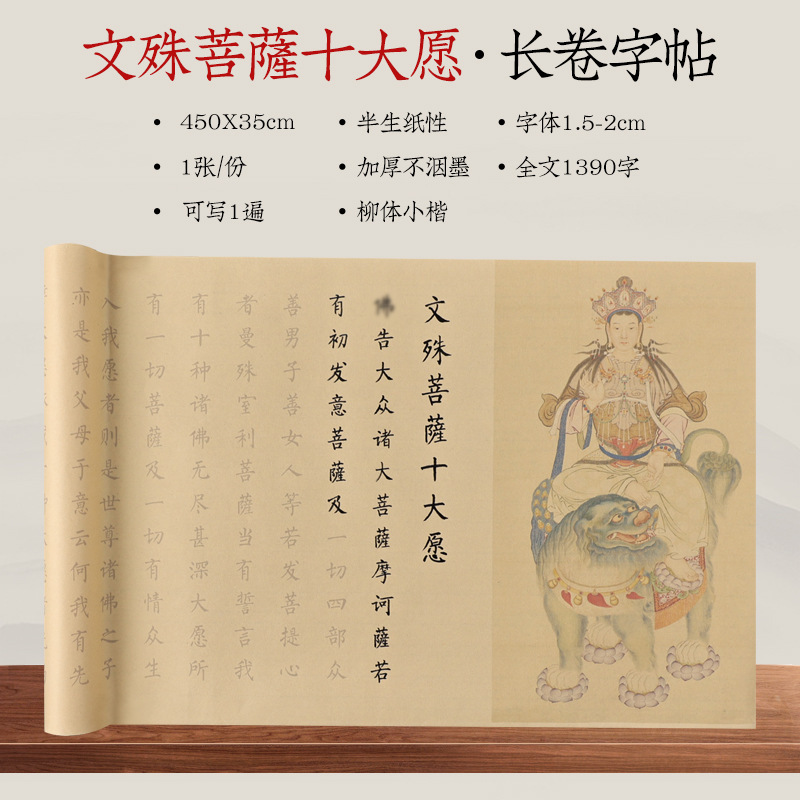 文殊菩薩十大愿·长卷字帖
• 450X35cm • 半生纸性 • 字体1.5-2cm
• 1张/份 • 加厚不洇墨 • 全文1390字
• 可写1遍 • 柳体小楷
文殊菩薩十大愿
告大众诸大菩薩摩诃薩若
有初发意菩薩及一切四部众
善男子善女人等若发菩提心
者曼殊室利菩薩当有誓言我
有十种诸佛无尽甚深大愿所
有一切菩薩及一切有情众生
入我愿者则是世尊诸佛之子
亦是我父母于意云何我有先